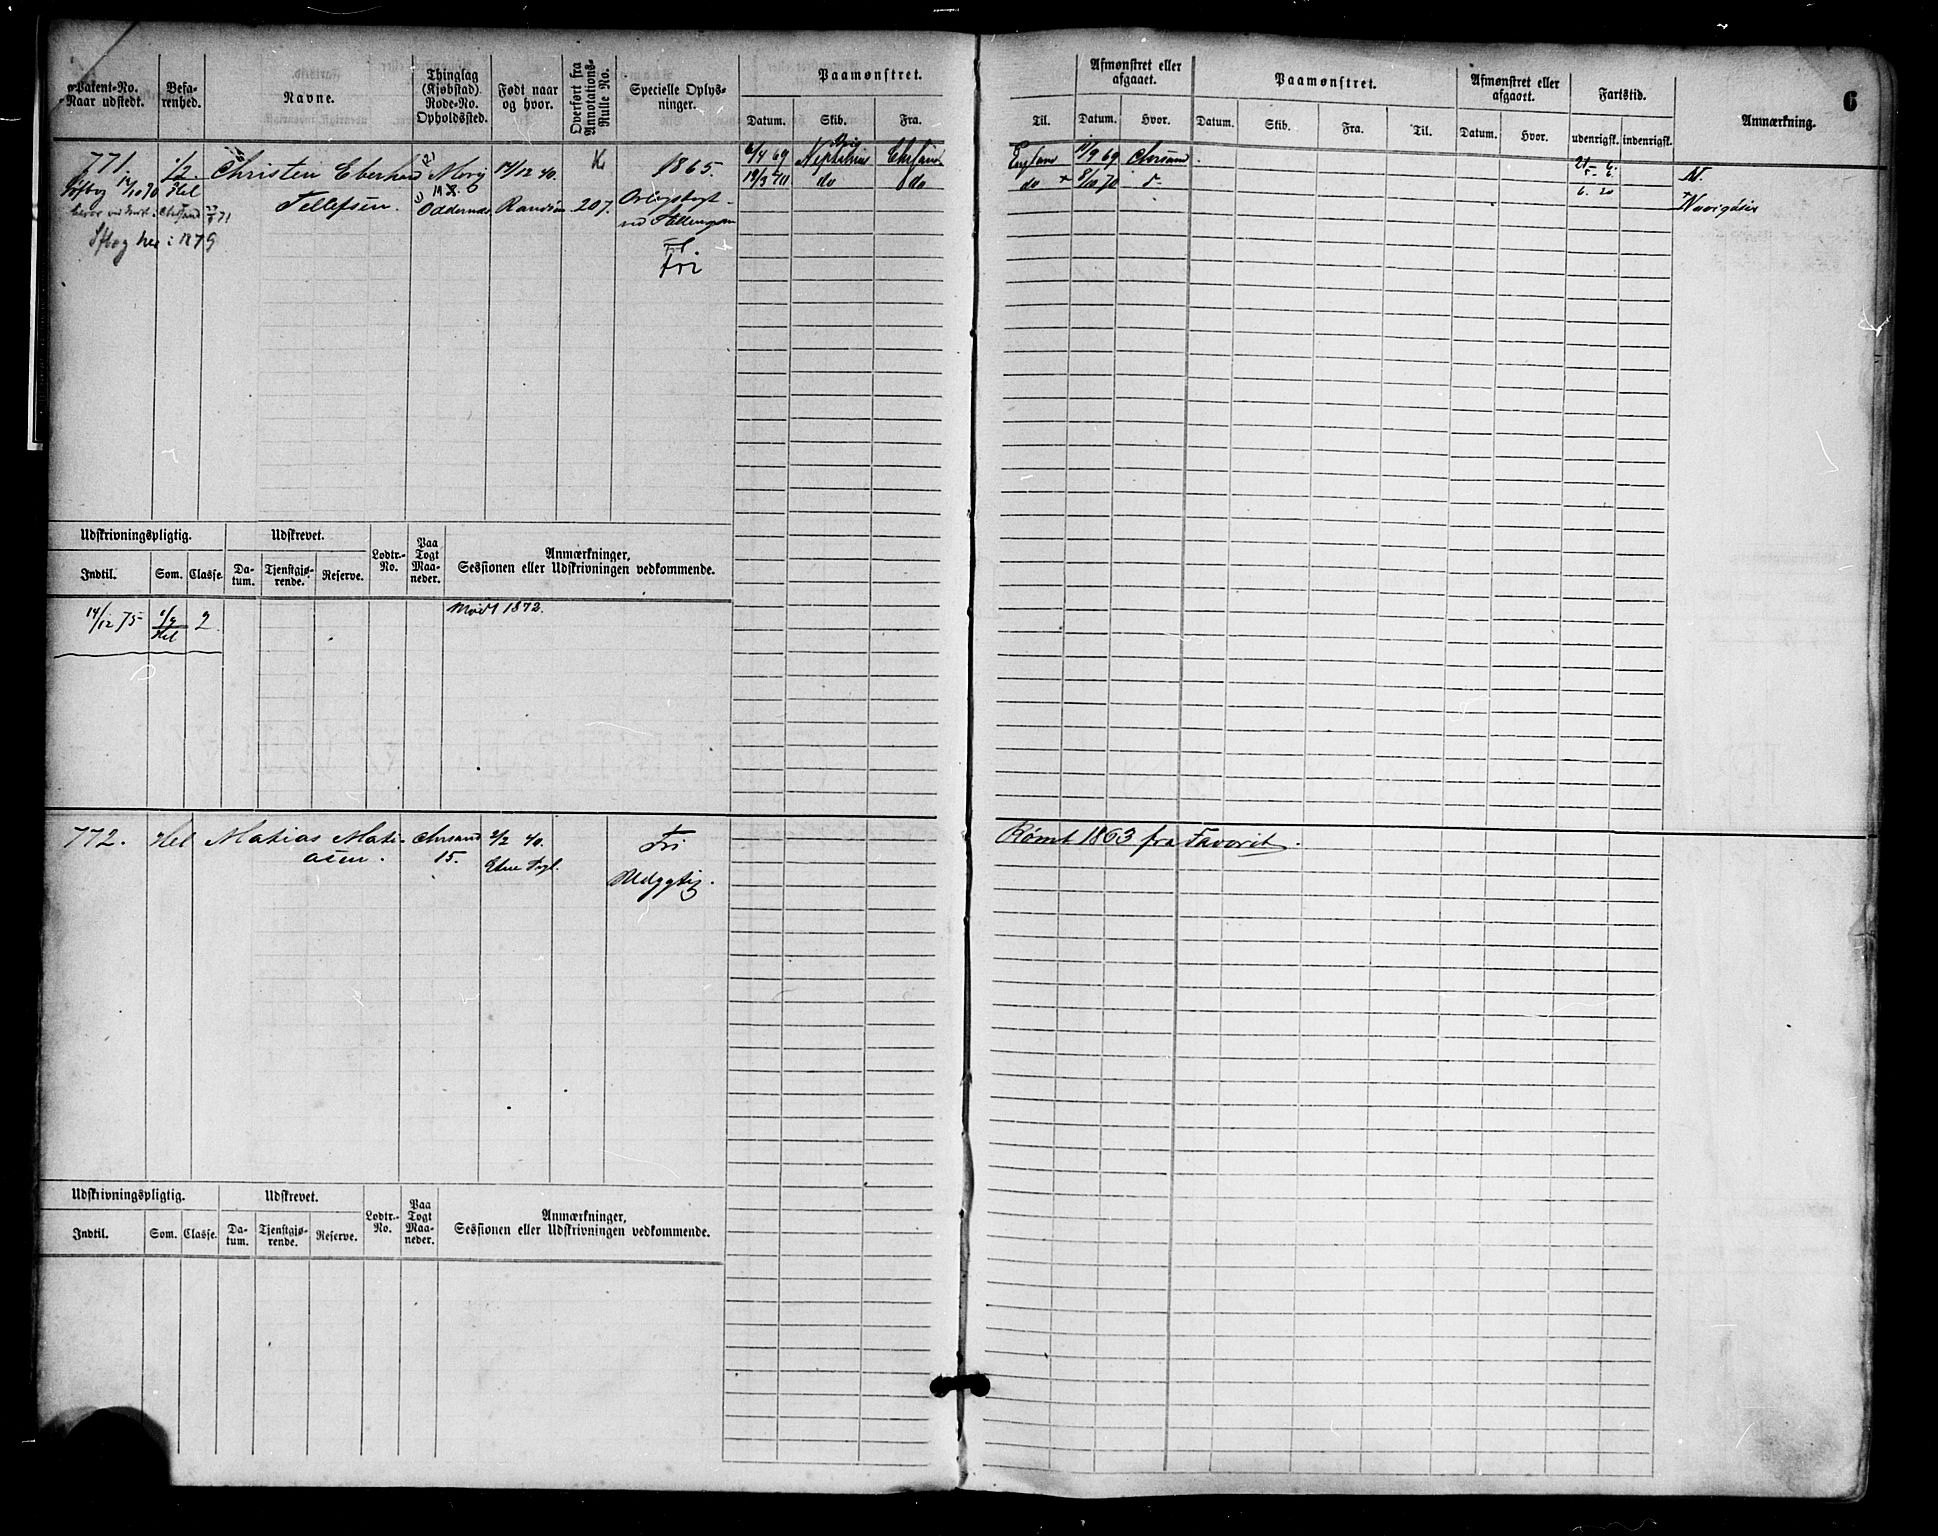 6
Patent-No.
Naar udstedt.
Befa-
renhed.
Navne.
Thinglag
(Kjøbstad)
Rode-No.
Opholdssted.
Født naar
og hvor.
Overført fra
Annotations-
Rulle No.
Specielle Oplys-
ninger.
Paamønstret.
Datum.
Skib.
Fra.
Til.
Afmønstret eller
afgaaet.
Datum.
Hvor.
Paamønstret.
Datum.
Skib.
Fra.
Til.
Afmønstret eller
afgaaet.
Datum.
Hvor.
Fartstid.
udenrigsk.
indenrigsk.
Anmærkning.
771.
1/2.
Hel
Christen Eberhard
Tellefsen.
Oddernes
14/12 40.
Randøen
207.
1865.
Fri
6/4 69 Neptunus
19/3 70 do do
England 11/9 69 Chrsand.
do 8/10 70
6. 20
N.
Udskrivningspligtig.
Udskrevet.
Indtil.
Som.
Classe.
Da-
tum.
Tjenstgjø-
rende.
Reserve.
Lodtr.-
No.
Paa
Togt
Maa-
neder.
Anmærkninger,
Sessionen eller Udskrivningen vedkommende.
14/12 75
1/2
Hel
2
Mødt 1872.
772.
Hel
Matias Mati-
asen.
Chrsand
15.
2/2 40.
Fri
Rømt 1863 fra Favorit.
Udskrivningspligtig.
Udskrevet.
Indtil.
Som.
Classe.
Da-
tum.
Tjenstgjø-
rende.
Reserve.
Lodtr.-
No.
Paa
Togt
Maa-
neder.
Anmærkninger,
Sessionen eller Udskrivningen vedkommende.